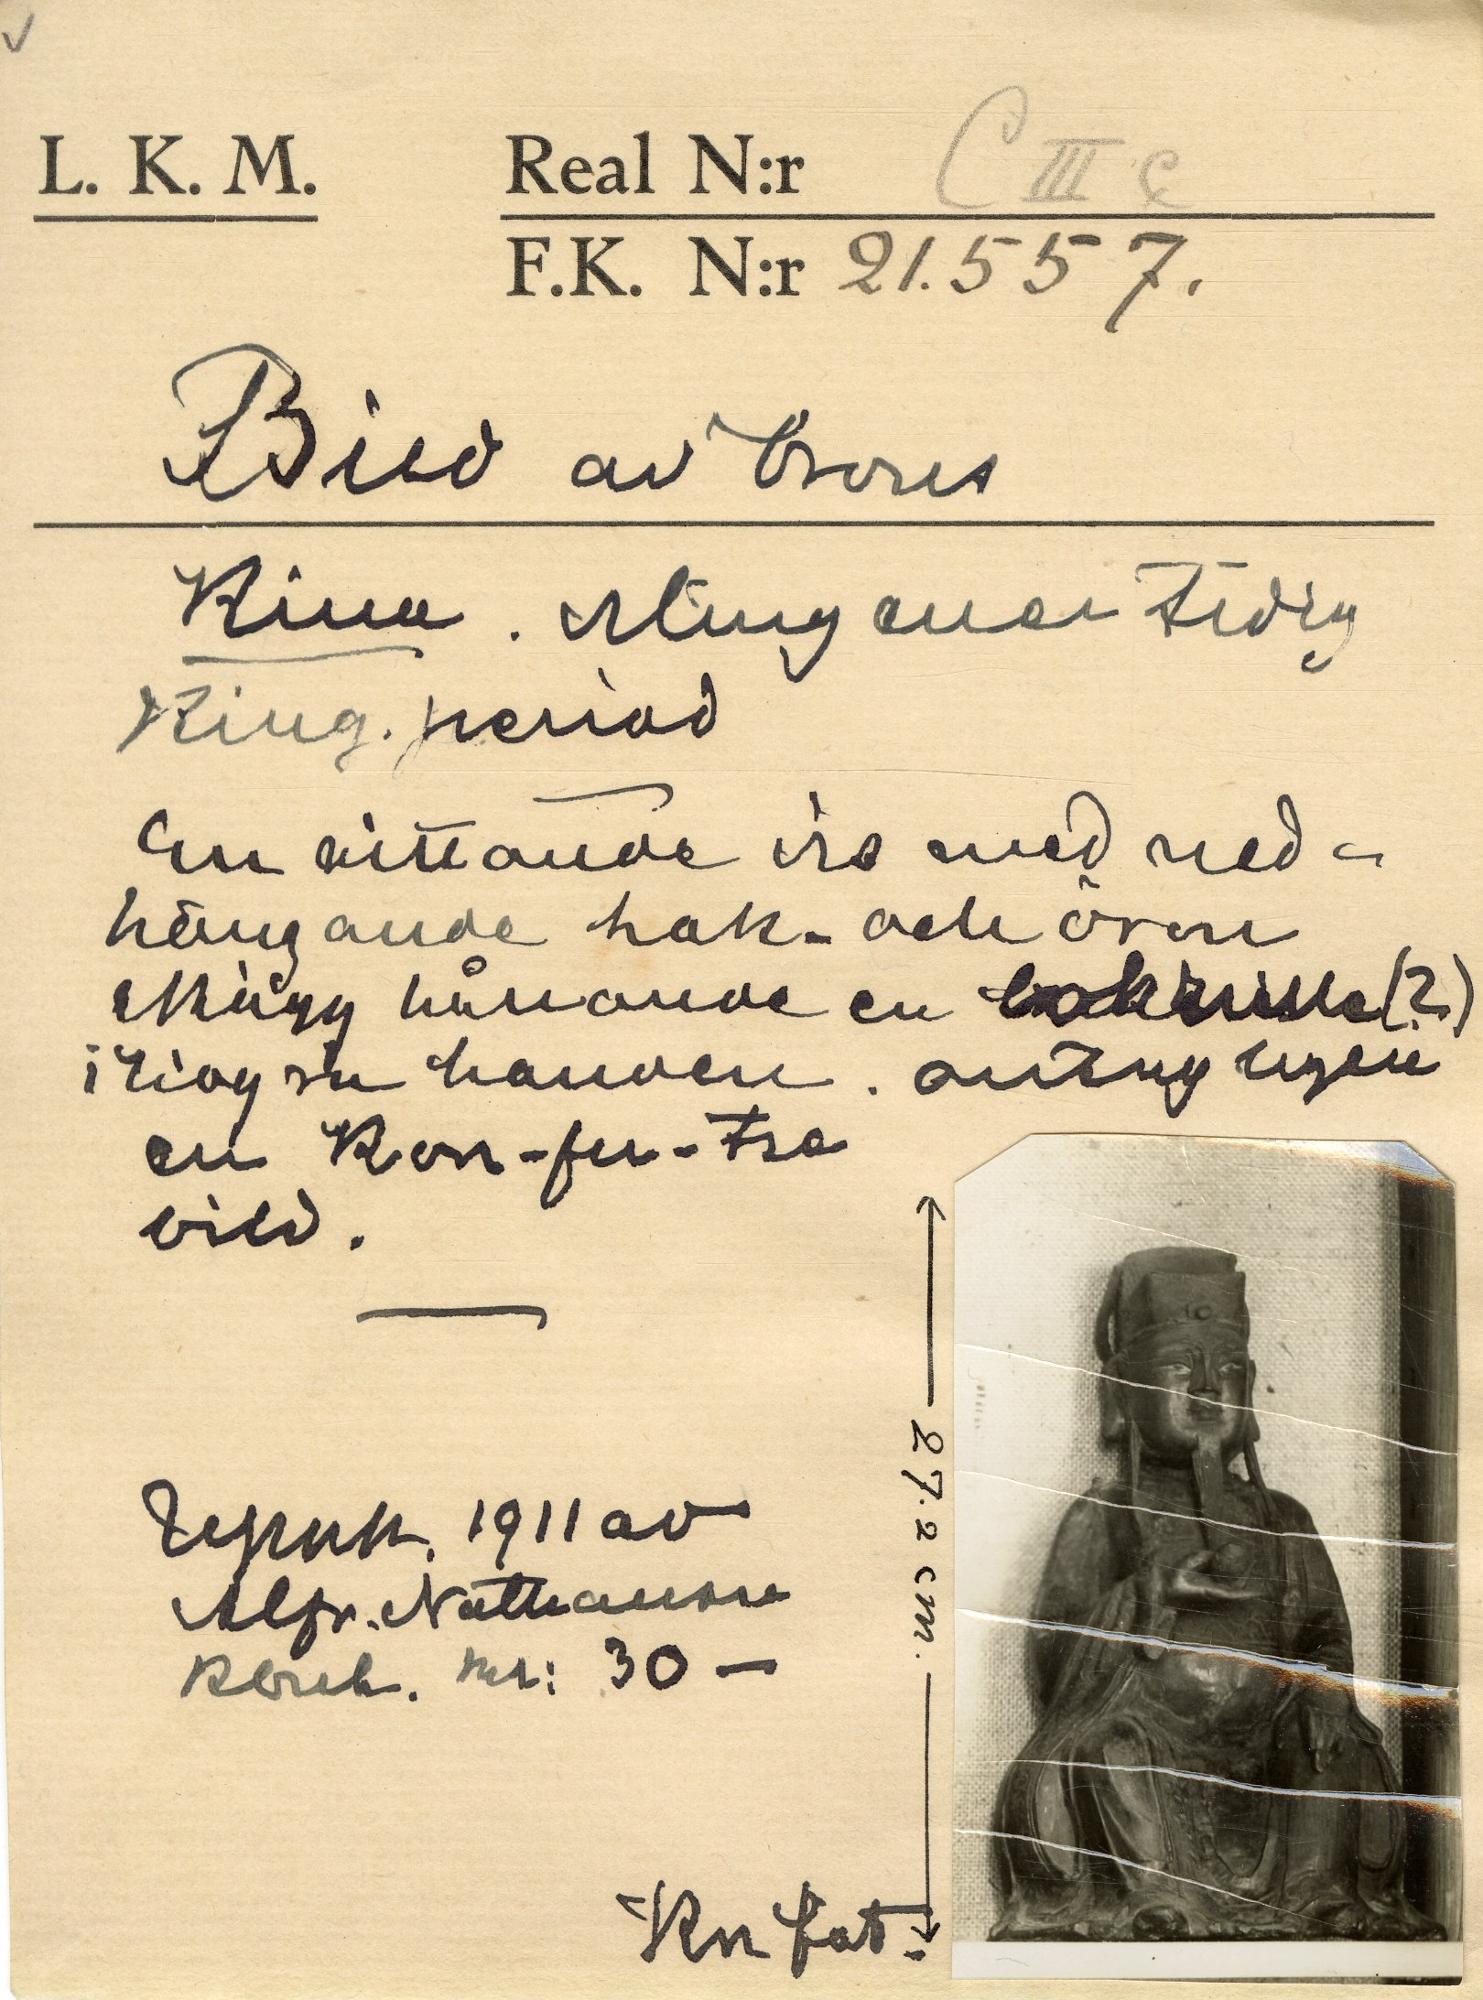 L. K. M.
Real N:r C III c
F.K. N:r 21.557.
Bild av brons
Kina. Ming eller tidig
King. period
En sittande vis med ned-
hängande hak- och öron
skägg hållande en bokrulle (?)
i högra handen. antagligen
en Kon-fu-tse
bild.
27.2 cm.
1911 av
Alfr. Nathanson
kr: 30 —